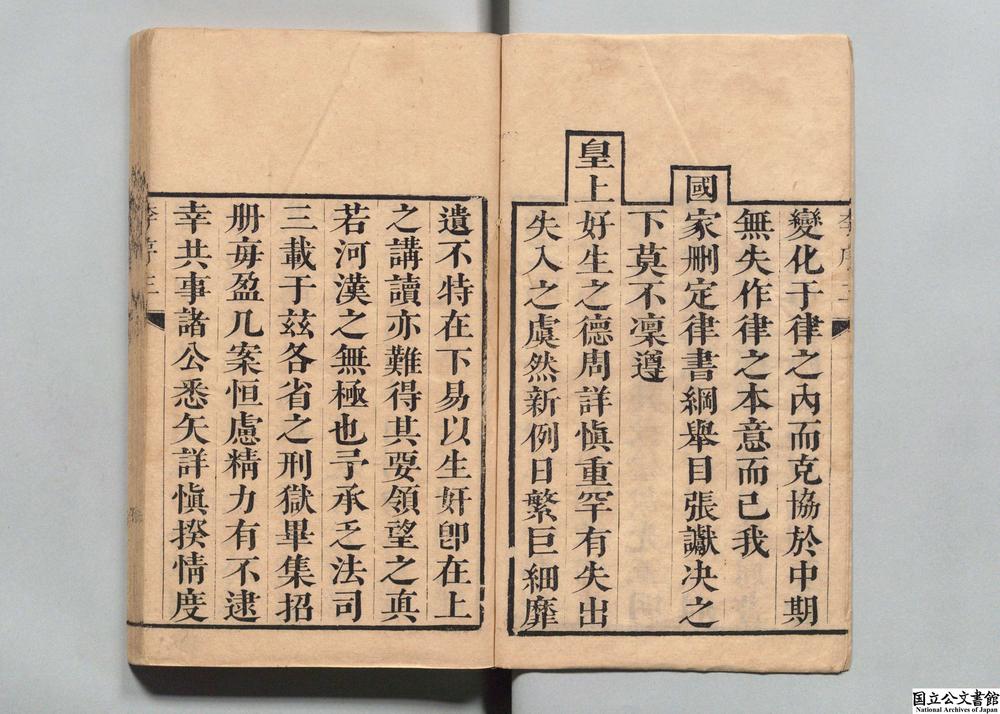 變化于律之內而克協於中期
無失作律之本意而已我
國家删定律書綱舉目張讞决之
下莫不凜遵
皇上好生之德周詳愼重罕有失出
失入之虞然新例日繁巨細靡
遺不特在下易以生奸卽在上
之講讀亦難得其要領望之眞
若河漢之無極也予承乏法司
三載于茲各省之刑獄畢集招
册每盈几案恒慮精力有不逮
幸共事諸公悉矢詳愼揆情度
国立公文書館
National Archives of Japan